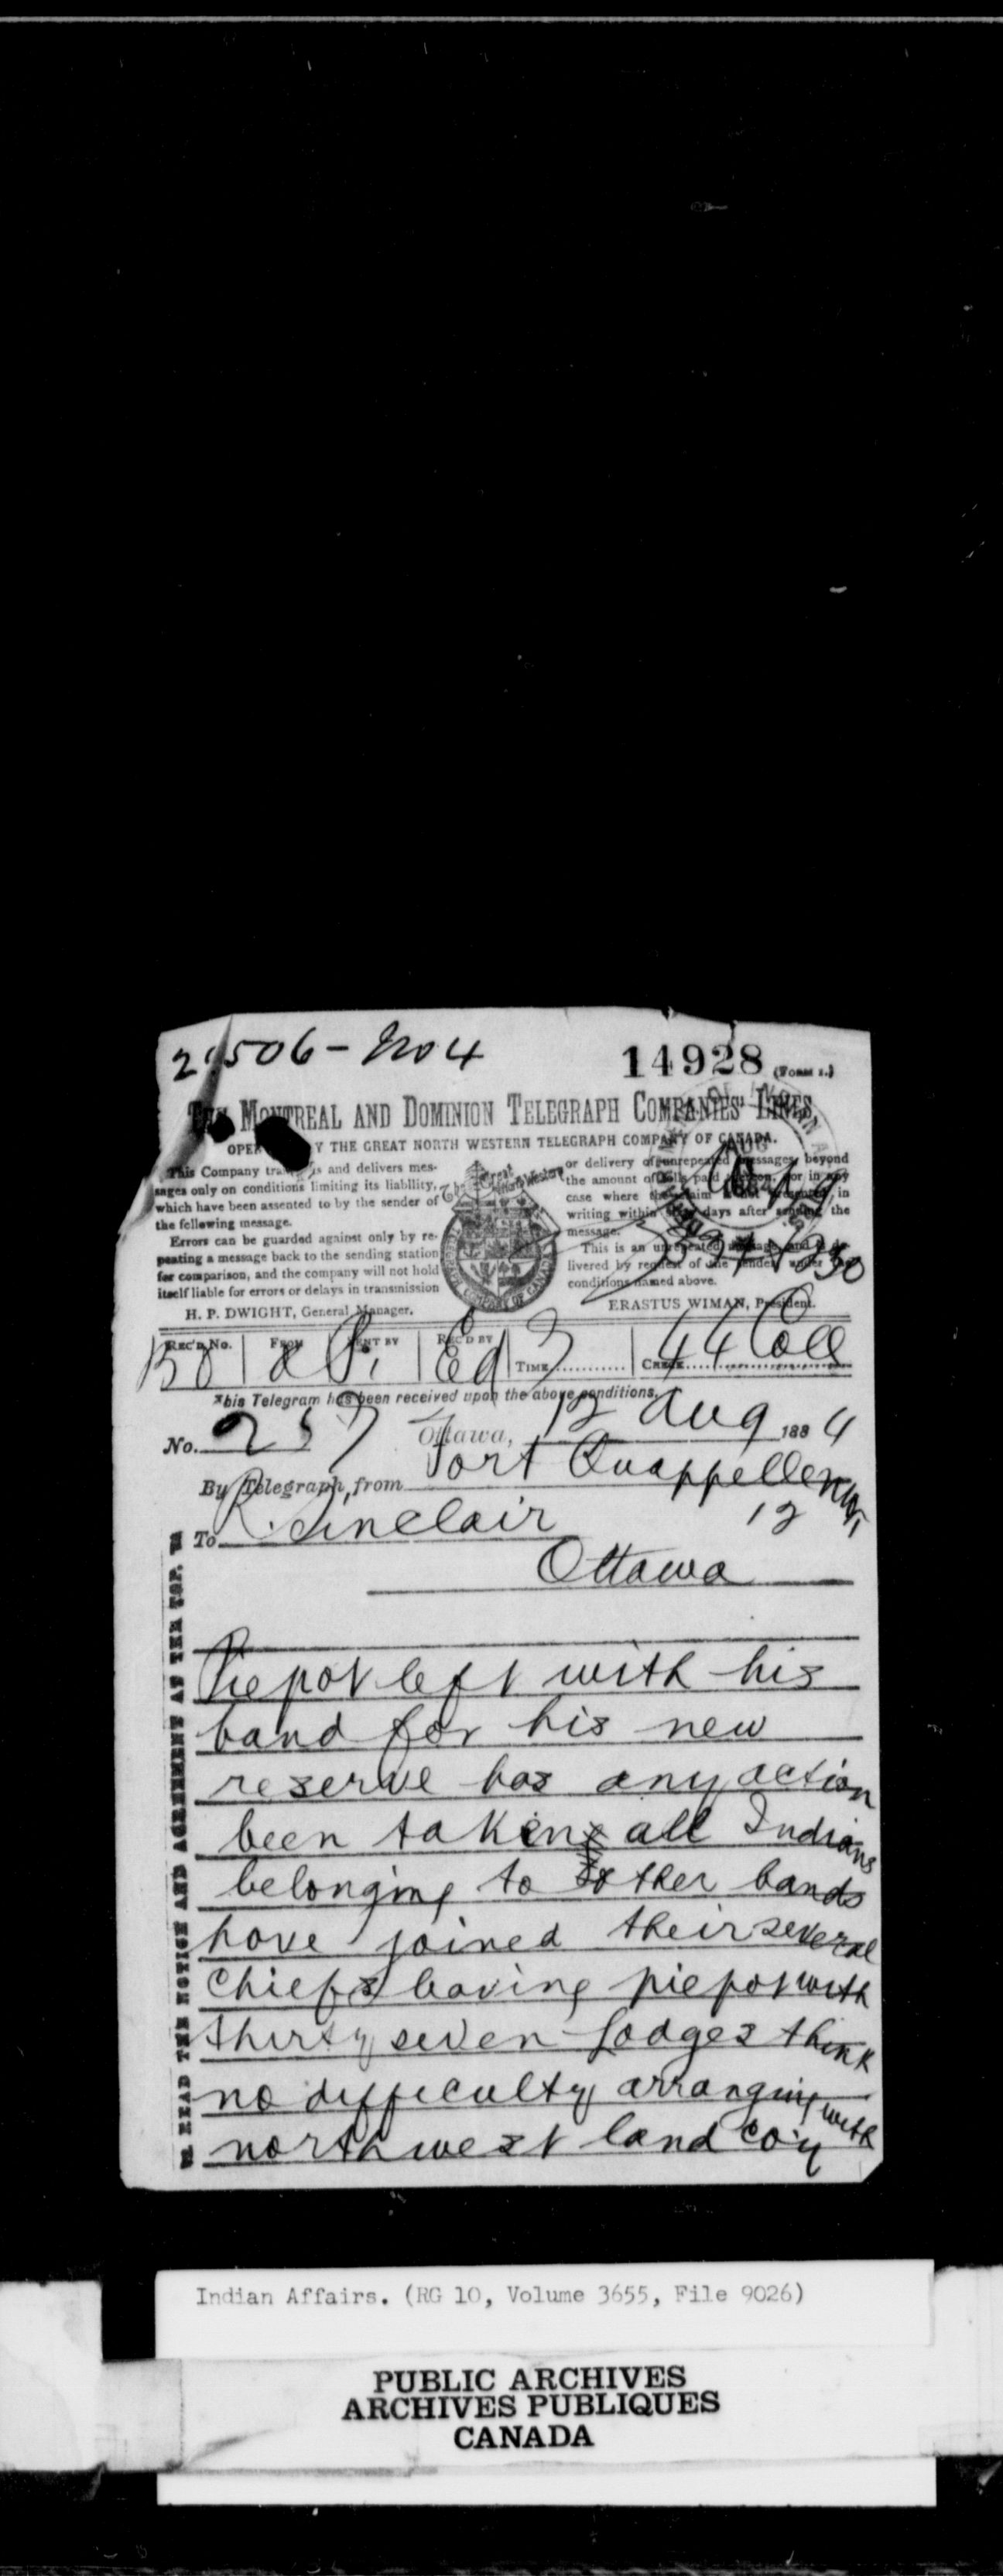 506 - No 4
14928 (FORM 1.)
THE MONTREAL AND DOMINION TELEGRAPH COMPANIES' LINES
OPE Y THE GREAT NORTH WESTERN TELEGRAPH COMPANY OF CANADA.
This Company tra s and delivers mes-
sages only on conditions limiting its liability,
which have been assented to by the sender of
the following message.
Errors can be guarded against only by re-
peating a message back to the sending station
for comparison, and the company will not hold
itself liable for errors or delays in transmission
or delivery of unrepeated messages, beyond
the amount of tolls paid thereon, nor in any
case where the claim is not presented in
writing within days after sending the
message.
This is an unrepeated message, and is de-
livered by request of the sender under the
conditions named above.
H. P. DWIGHT, General Manager.
ERASTUS WIMAN, President.
REC'D No. FROM SENT BY REC'D BY TIME CHECK
44 Coll
This Telegram has been received upon the above conditions.
No. 257 Ottawa, 12 Aug 1884
By Telegraph, from Fort Quappelle NW,
To R. Sinclair 12
Ottawa
Piepot left with his
band for his new
reserve has any action
been taken all Indians
belonging to other bands
have joined their several
Chiefs leaving piepot with
thirty seven lodges think
no difficulty arranging with
north west land Co'y
READ THE NOTICE AND AGREEMENT AT THE TOP.
Indian Affairs. (RG 10, Volume 3655, File 9026)
PUBLIC ARCHIVES
ARCHIVES PUBLIQUES
CANADA